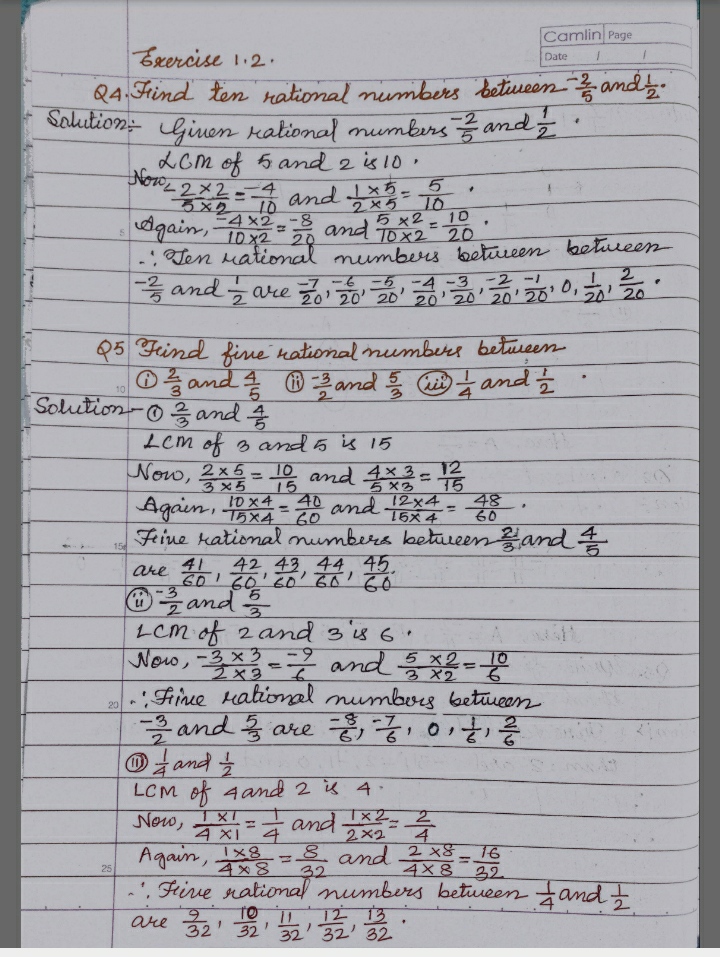 Camlin Page
Date / /
Exercise 1.2.
Q4. Find ten rational numbers between -2/5 and 1/2.
Solution:- Given rational numbers -2/5 and 1/2.
LCM of 5 and 2 is 10.
Now, -2×2/5×2 = -4/10 and 1×5/2×5 = 5/10.
5 Again, -4×2/10×2 = -8/20 and 5×2/10×2 = 10/20.
∴ Ten rational numbers between between
-2/5 and 1/2 are -7/20, -6/20, -5/20, -4/20, -3/20, -2/20, -1/20, 0, 1/20, 2/20.
Q5 Find five rational numbers between
10 (i) 2/3 and 4/5 (ii) -3/2 and 5/3 (iii) 1/4 and 1/2.
Solution - (i) 2/3 and 4/5
LCM of 3 and 5 is 15
Now, 2×5/3×5 = 10/15 and 4×3/5×3 = 12/15
Again, 10×4/15×4 = 40/60 and 12×4/15×4 = 48/60.
15 Five rational numbers between 2/3 and 4/5
are 41/60, 42/60, 43/60, 44/60, 45/60.
(ii) -3/2 and 5/3
LCM of 2 and 3 is 6.
Now, -3×3/2×3 = -9/6 and 5×2/3×2 = 10/6
20 ∴ Five rational numbers between
-3/2 and 5/3 are -8/6, -7/6, 0, 1/6, 2/6
(iii) 1/4 and 1/2
LCM of 4 and 2 is 4.
Now, 1×1/4×1 = 1/4 and 1×2/2×2 = 2/4
25 Again, 1×8/4×8 = 8/32 and 2×8/4×8 = 16/32
∴ Five rational numbers between 1/4 and 1/2
are 9/32, 10/32, 11/32, 12/32, 13/32.